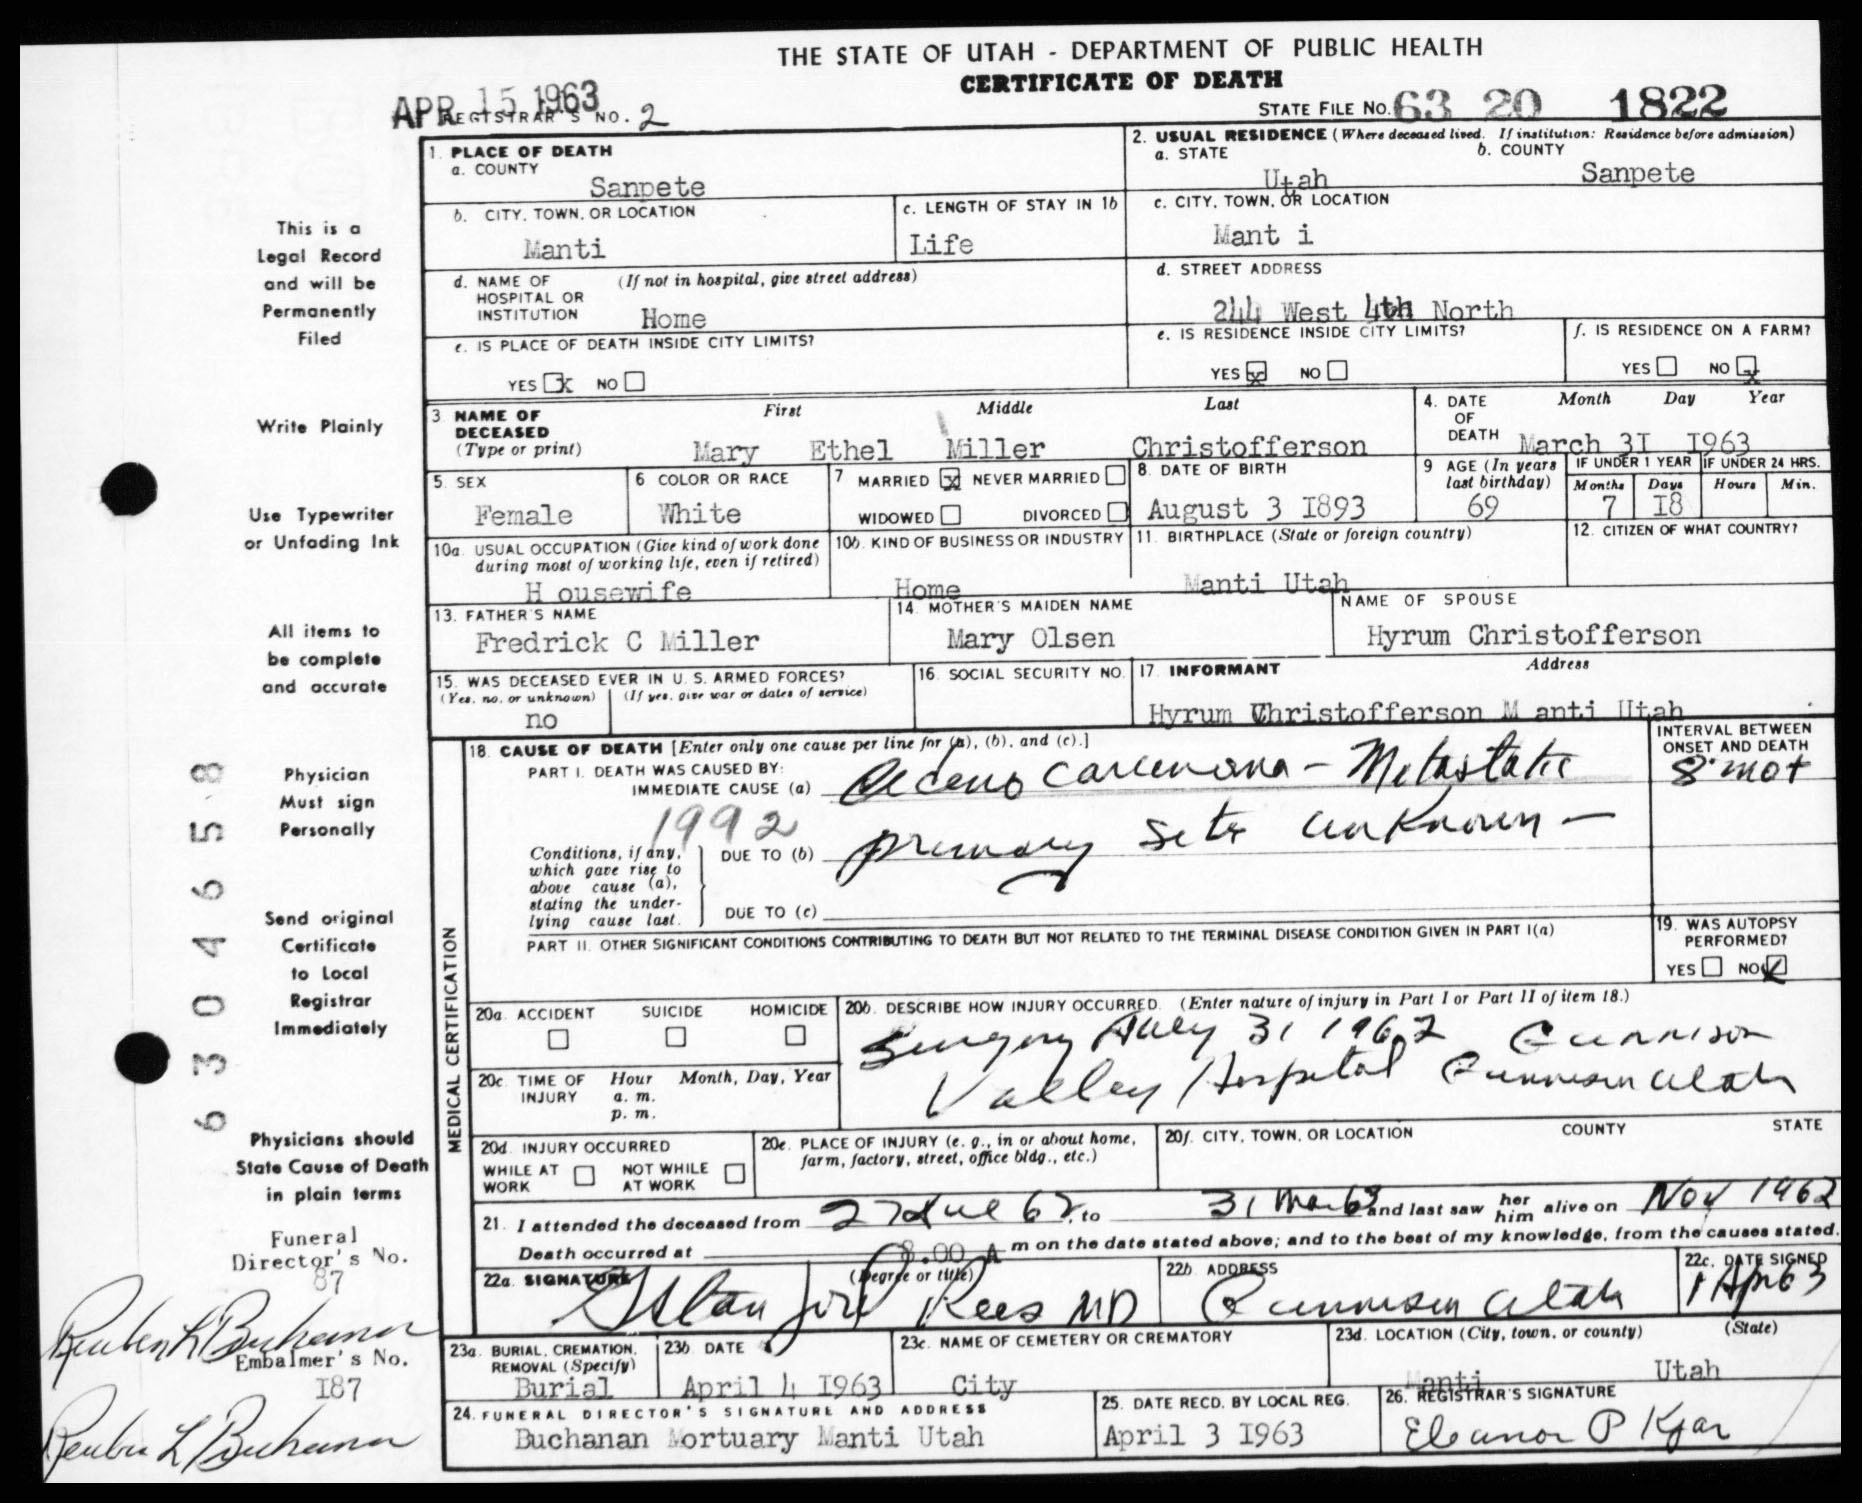 THE STATE OF UTAH - DEPARTMENT OF PUBLIC HEALTH
CERTIFICATE OF DEATH
APR 15 1963
REGISTRAR'S NO. 2
STATE FILE NO. 63 20 1822
1. PLACE OF DEATH
a. COUNTY
Sanpete
2. USUAL RESIDENCE (Where deceased lived. If institution: Residence before admission)
a. STATE b. COUNTY
Utah Sanpete
b. CITY, TOWN, OR LOCATION
Manti
c. LENGTH OF STAY IN 1b
Life
c. CITY, TOWN, OR LOCATION
Mant i
d. NAME OF HOSPITAL OR INSTITUTION (If not in hospital, give street address)
Home
d. STREET ADDRESS
244 West 4th North
e. IS PLACE OF DEATH INSIDE CITY LIMITS?
YES X NO
e. IS RESIDENCE INSIDE CITY LIMITS?
YES X NO
f. IS RESIDENCE ON A FARM?
YES NO X
3. NAME OF DECEASED (Type or print)
First Middle Last
Mary Ethel Miller Christofferson
4. DATE OF DEATH Month Day Year
March 3I I963
5. SEX
Female
6. COLOR OR RACE
White
7 MARRIED X NEVER MARRIED
WIDOWED DIVORCED
8. DATE OF BIRTH
August 3 I893
9 AGE (In years last birthday)
69
IF UNDER 1 YEAR IF UNDER 24 HRS.
Months Days Hours Min.
7 I8
10a. USUAL OCCUPATION (Give kind of work done during most of working life, even if retired)
H ousewife
10b. KIND OF BUSINESS OR INDUSTRY
Home
11. BIRTHPLACE (State or foreign country)
Manti Utah
12. CITIZEN OF WHAT COUNTRY?
13. FATHER'S NAME
Fredrick C Miller
14. MOTHER'S MAIDEN NAME
Mary Olsen
NAME OF SPOUSE
Hyrum Christofferson
15. WAS DECEASED EVER IN U. S. ARMED FORCES?
(Yes, no, or unknown) (If yes, give war or dates of service)
no
16. SOCIAL SECURITY NO.
17. INFORMANT Address
Hyrum Christofferson M anti Utah
18. CAUSE OF DEATH [Enter only one cause per line for (a), (b), and (c).]
PART I. DEATH WAS CAUSED BY:
IMMEDIATE CAUSE (a) Adeno Carcinoma - Metastatic
INTERVAL BETWEEN ONSET AND DEATH
8 mo+
1992
Conditions, if any, which gave rise to above cause (a), stating the underlying cause last.
DUE TO (b) primary site unknown -
DUE TO (c)
PART II. OTHER SIGNIFICANT CONDITIONS CONTRIBUTING TO DEATH BUT NOT RELATED TO THE TERMINAL DISEASE CONDITION GIVEN IN PART I(a)
19. WAS AUTOPSY PERFORMED?
YES NO
MEDICAL CERTIFICATION
20a. ACCIDENT SUICIDE HOMICIDE
20b. DESCRIBE HOW INJURY OCCURRED. (Enter nature of injury in Part I or Part II of item 18.)
Surgery July 31 1962 Gunnison
Valley Hospital Gunnison Utah
20c. TIME OF INJURY Hour Month, Day, Year
a. m.
p. m.
20d. INJURY OCCURRED
WHILE AT WORK NOT WHILE AT WORK
20e. PLACE OF INJURY (e. g., in or about home, farm, factory, street, office bldg., etc.)
20f. CITY, TOWN, OR LOCATION COUNTY STATE
21. I attended the deceased from 27 Jul 62, to 31 Mar 63 and last saw her him alive on Nov 1962
Death occurred at 8.00 A m on the date stated above; and to the best of my knowledge, from the causes stated.
22a. SIGNATURE (Degree or title)
Rees MD
22b. ADDRESS
Gunnison Utah
22c. DATE SIGNED
1 Apr 63
23a. BURIAL, CREMATION, REMOVAL (Specify)
Burial
23b. DATE
April 4 I963
23c. NAME OF CEMETERY OR CREMATORY
City
23d. LOCATION (City, town, or county) (State)
Manti Utah
24. FUNERAL DIRECTOR'S SIGNATURE AND ADDRESS
Buchanan Mortuary Manti Utah
25. DATE RECD. BY LOCAL REG.
April 3 I963
26. REGISTRAR'S SIGNATURE
Eleanor P Kjar
This is a
Legal Record
and will be
Permanently
Filed
Write Plainly
Use Typewriter
or Unfading Ink
All items to
be complete
and accurate
Physician
Must sign
Personally
Send original
Certificate
to Local
Registrar
Immediately
Physicians should
State Cause of Death
in plain terms
63046558
Funeral
Director's No.
87
Reuben L Buchanan
Embalmer's No.
I87
Reuben L Buchanan